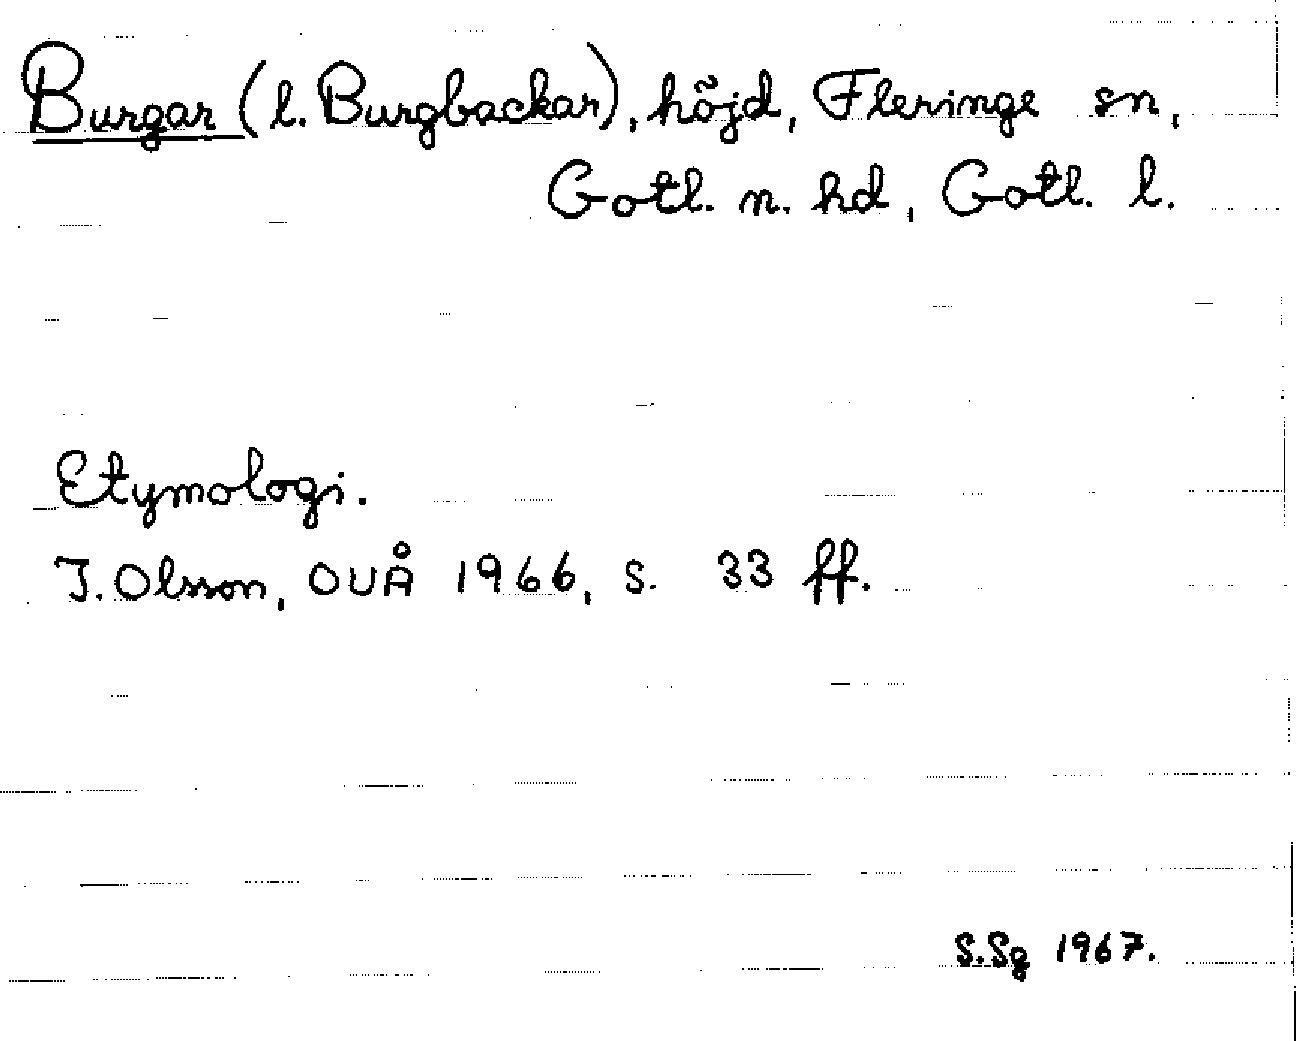 Burgar (l. Burgbackar), höjd, Fleringe sn,
Gotl. n. hd, Gotl. l.
Etymologi.
I. Olsson, OUÅ 1966, s. 33 ff.
S.Sg 1967.